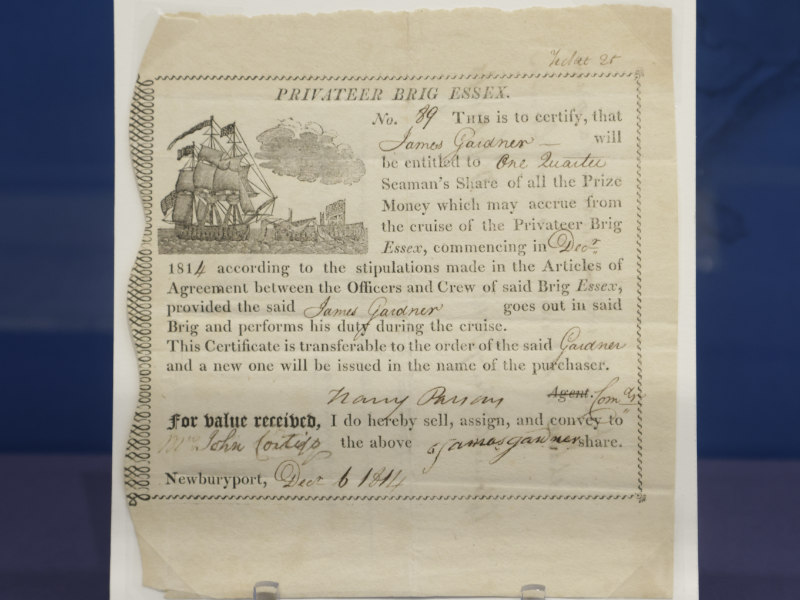 PRIVATEER BRIG ESSEX.
No. 89 THIS is to certify, that
James Gardner will
be entitled to One Quarter
Seaman's Share of all the Prize
Money which may accrue from
the cruise of the Privateer Brig
Essex, commencing in Decr
1814 according to the stipulations made in the Articles of
Agreement between the Officers and Crew of said Brig Essex,
provided the said James Gardner goes out in said
Brig and performs his duty during the cruise.
This Certificate is transferable to the order of the said Gardner
and a new one will be issued in the name of the purchaser.
Agent.
For value received, I do hereby sell, assign, and convey to
John the above James Gardner share.
Newburyport, Decr 6 1814